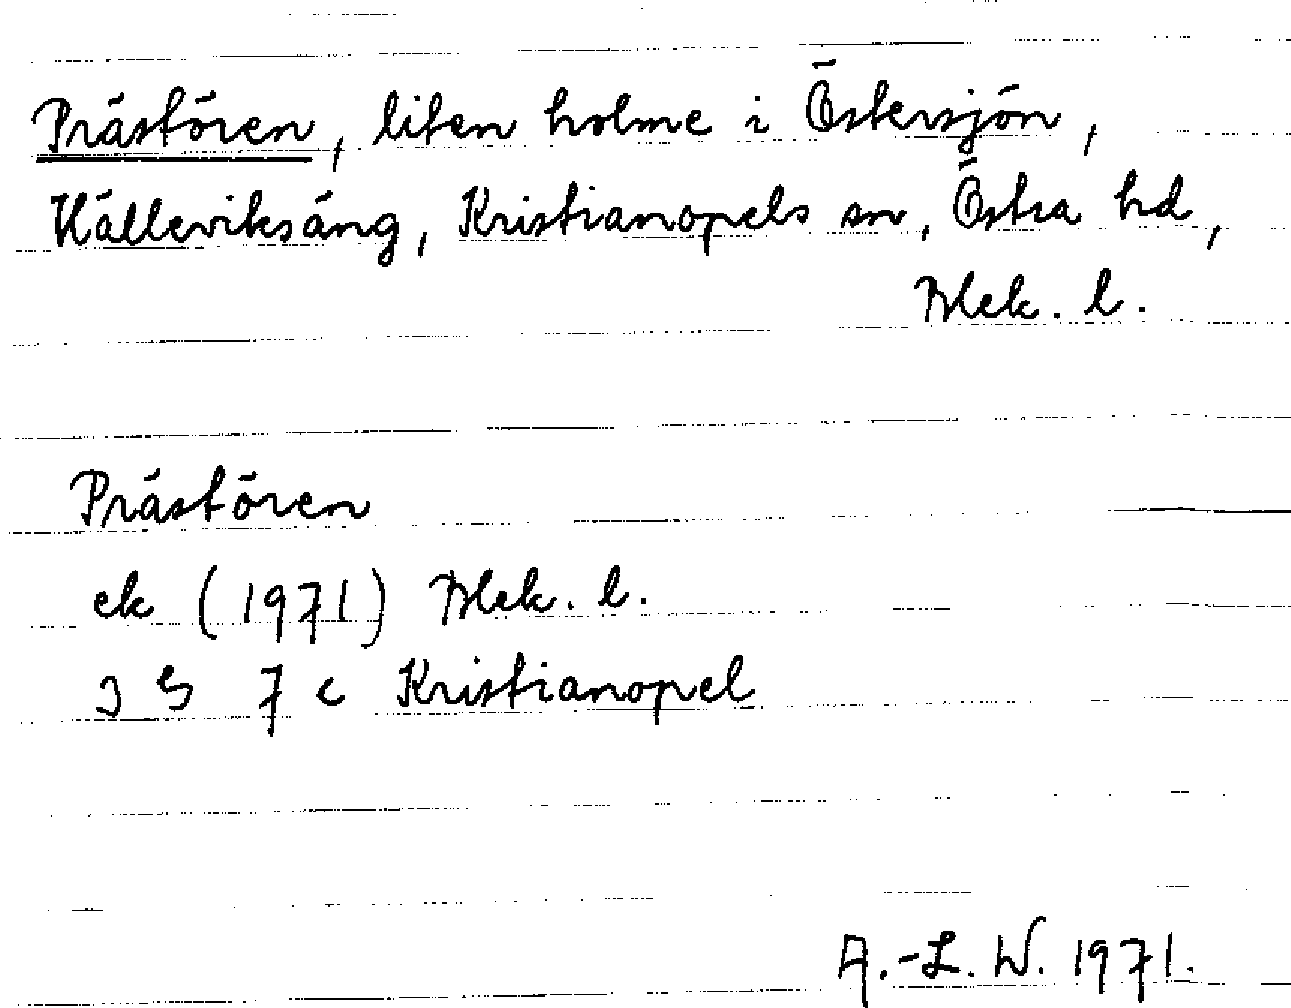 Prästören, liten holme i Östersjön,
Källeviksäng, Kristianopels sn, Östra hd,
Blek. l.
Prästören
ek (1971) Blek. l.
3 G 7 c Kristianopel
A.-L. W. 1971.